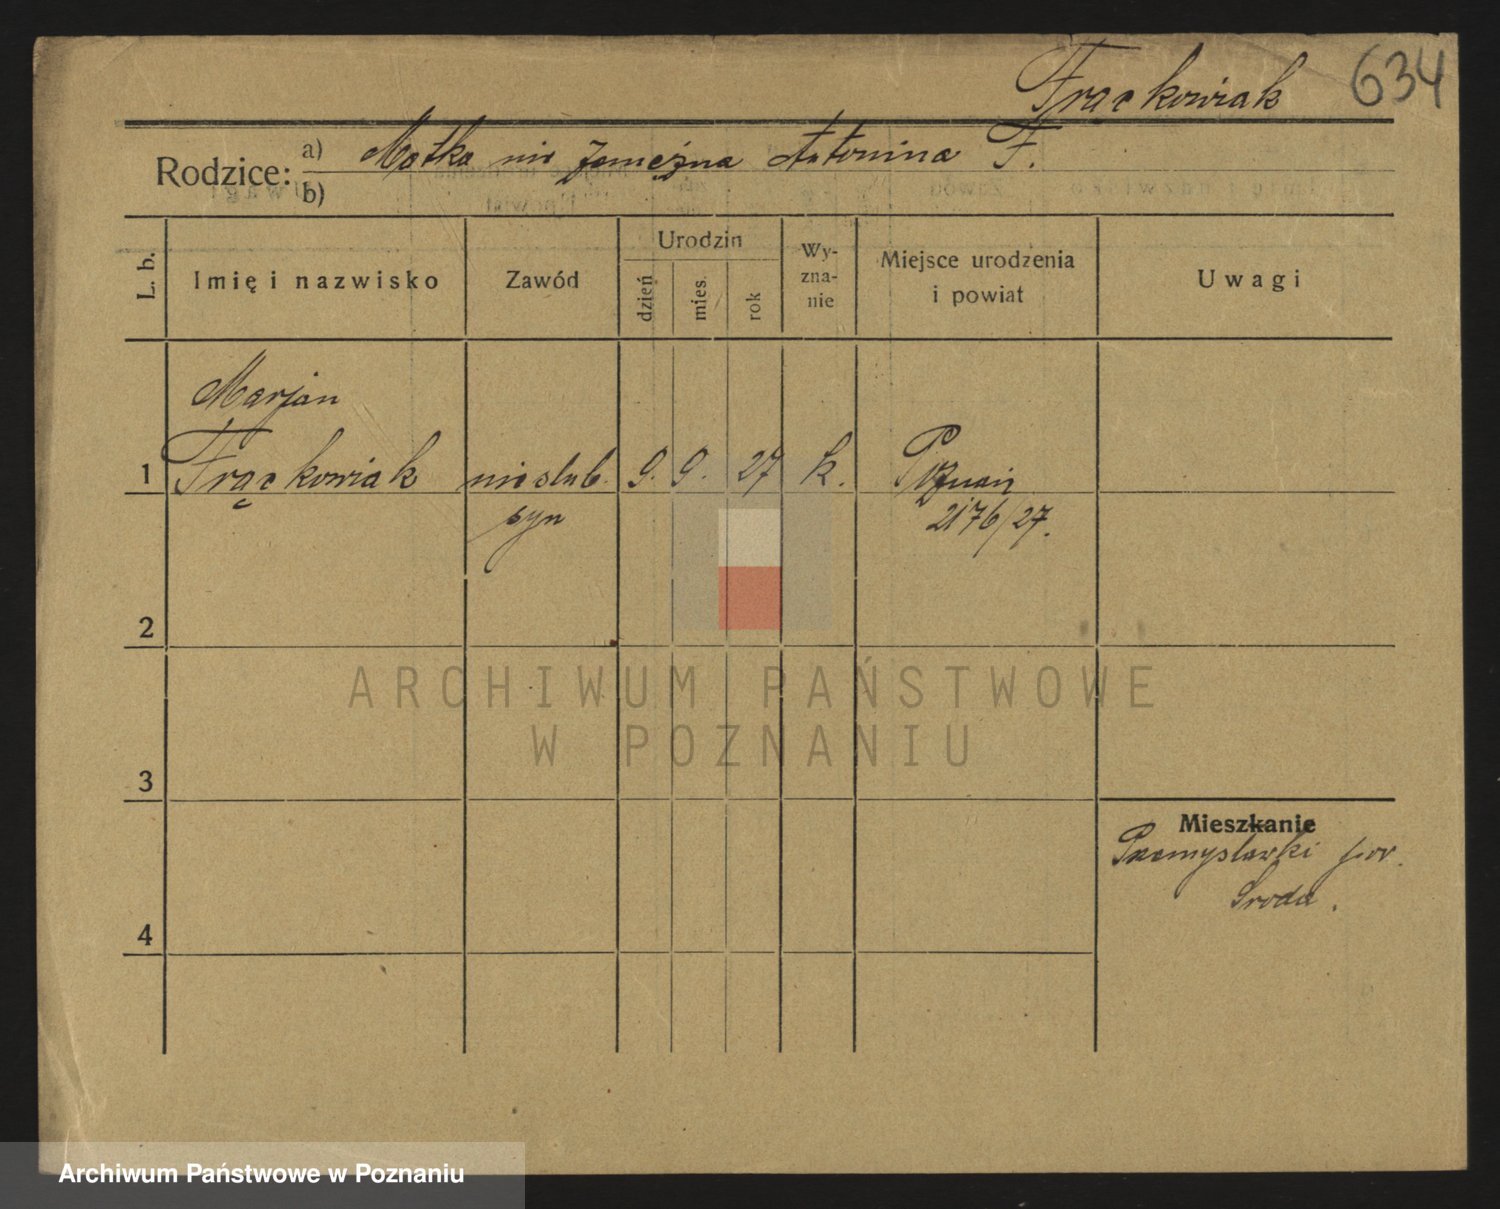 Frąckowiak 634
Rodzice: a) Matka nie zamężna Antonina F.
b)
L. b.
Imię i nazwisko
Zawód
Urodzin
dzień
mies.
rok
Wy-
zna-
nie
Miejsce urodzenia
i powiat
Uwagi
Marjan
1 Frąckowiak nieślub. 9. 9. 27 k. Poznań
syn 2176/27.
2
3
4
Mieszkanie
Przemysławki pow.
Środa.
ARCHIWUM PAŃSTWOWE
W POZNANIU
Archiwum Państwowe w Poznaniu